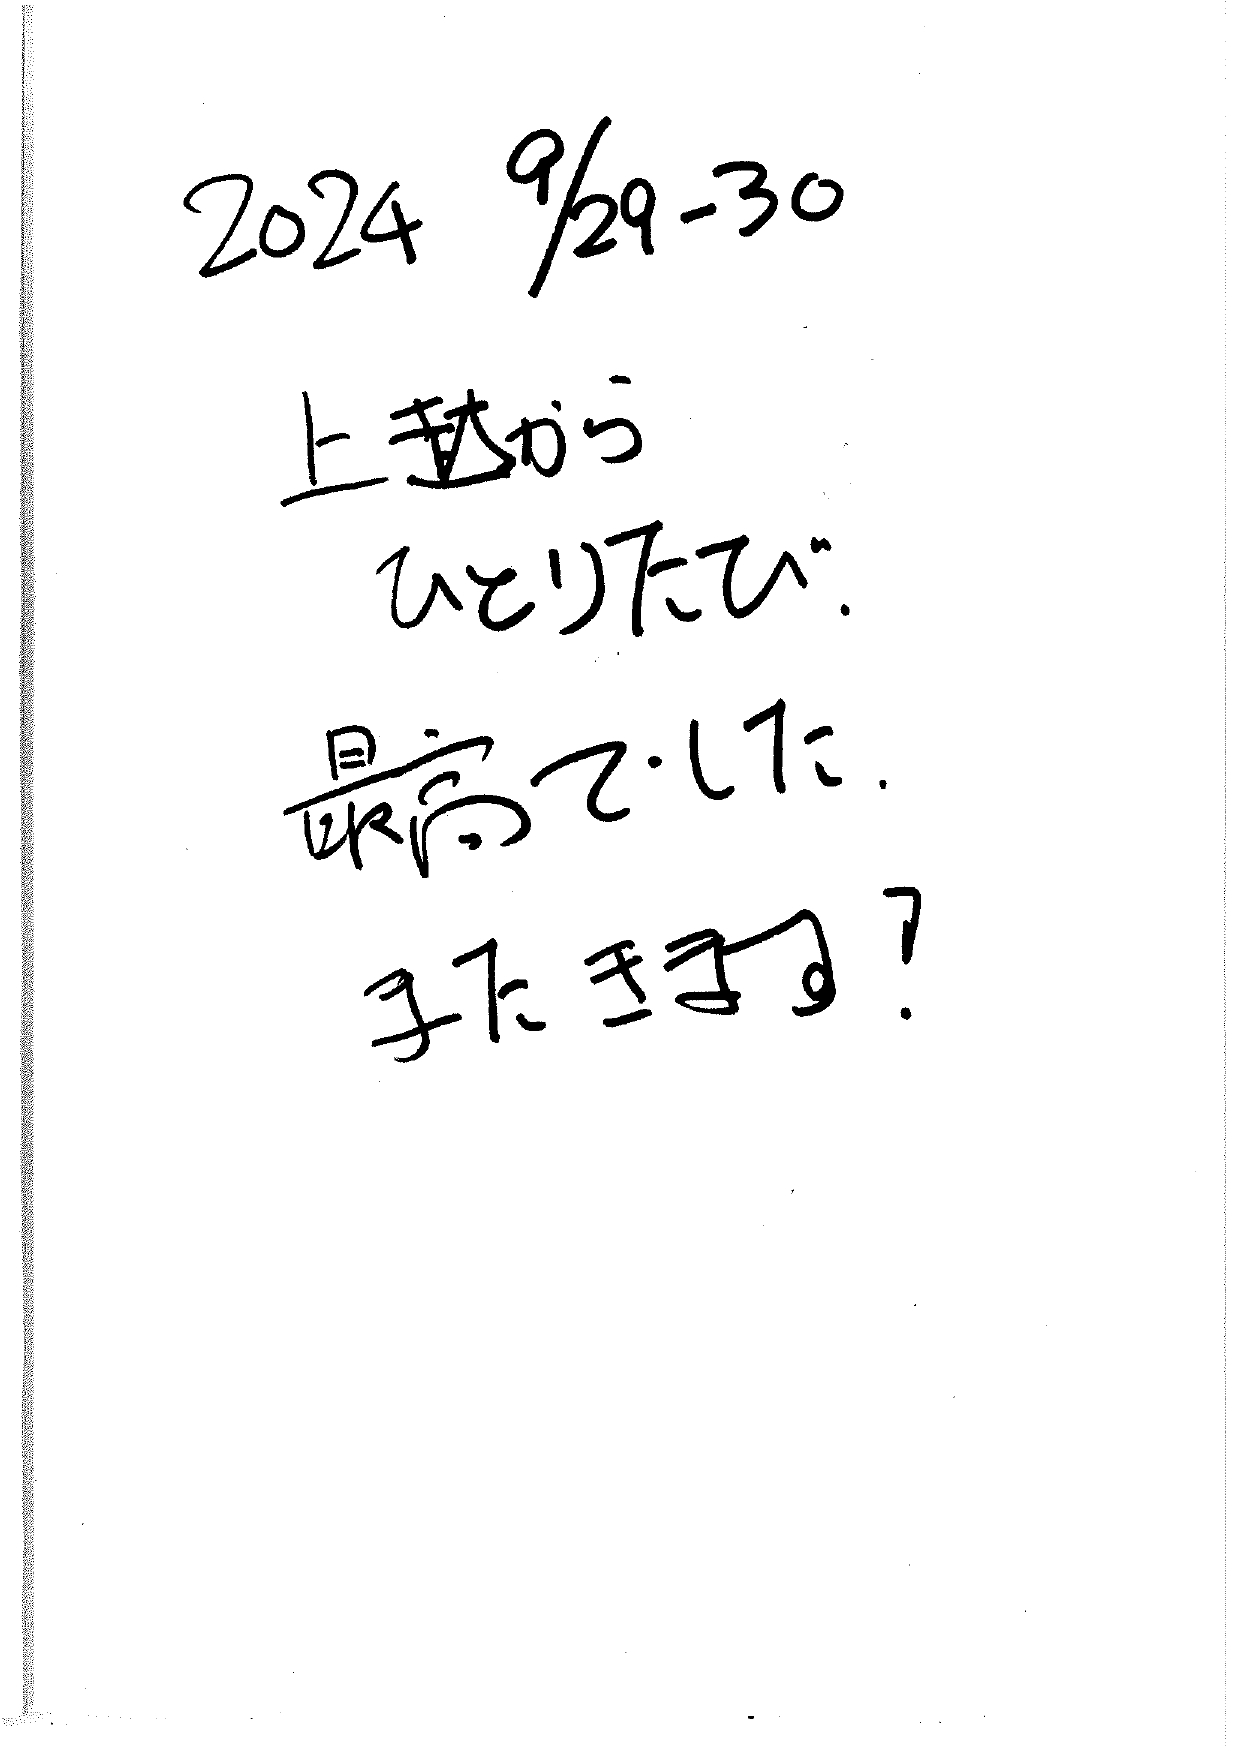 2024 9/29-30
上越から
ひとりたび.
最高でした.
またきます!